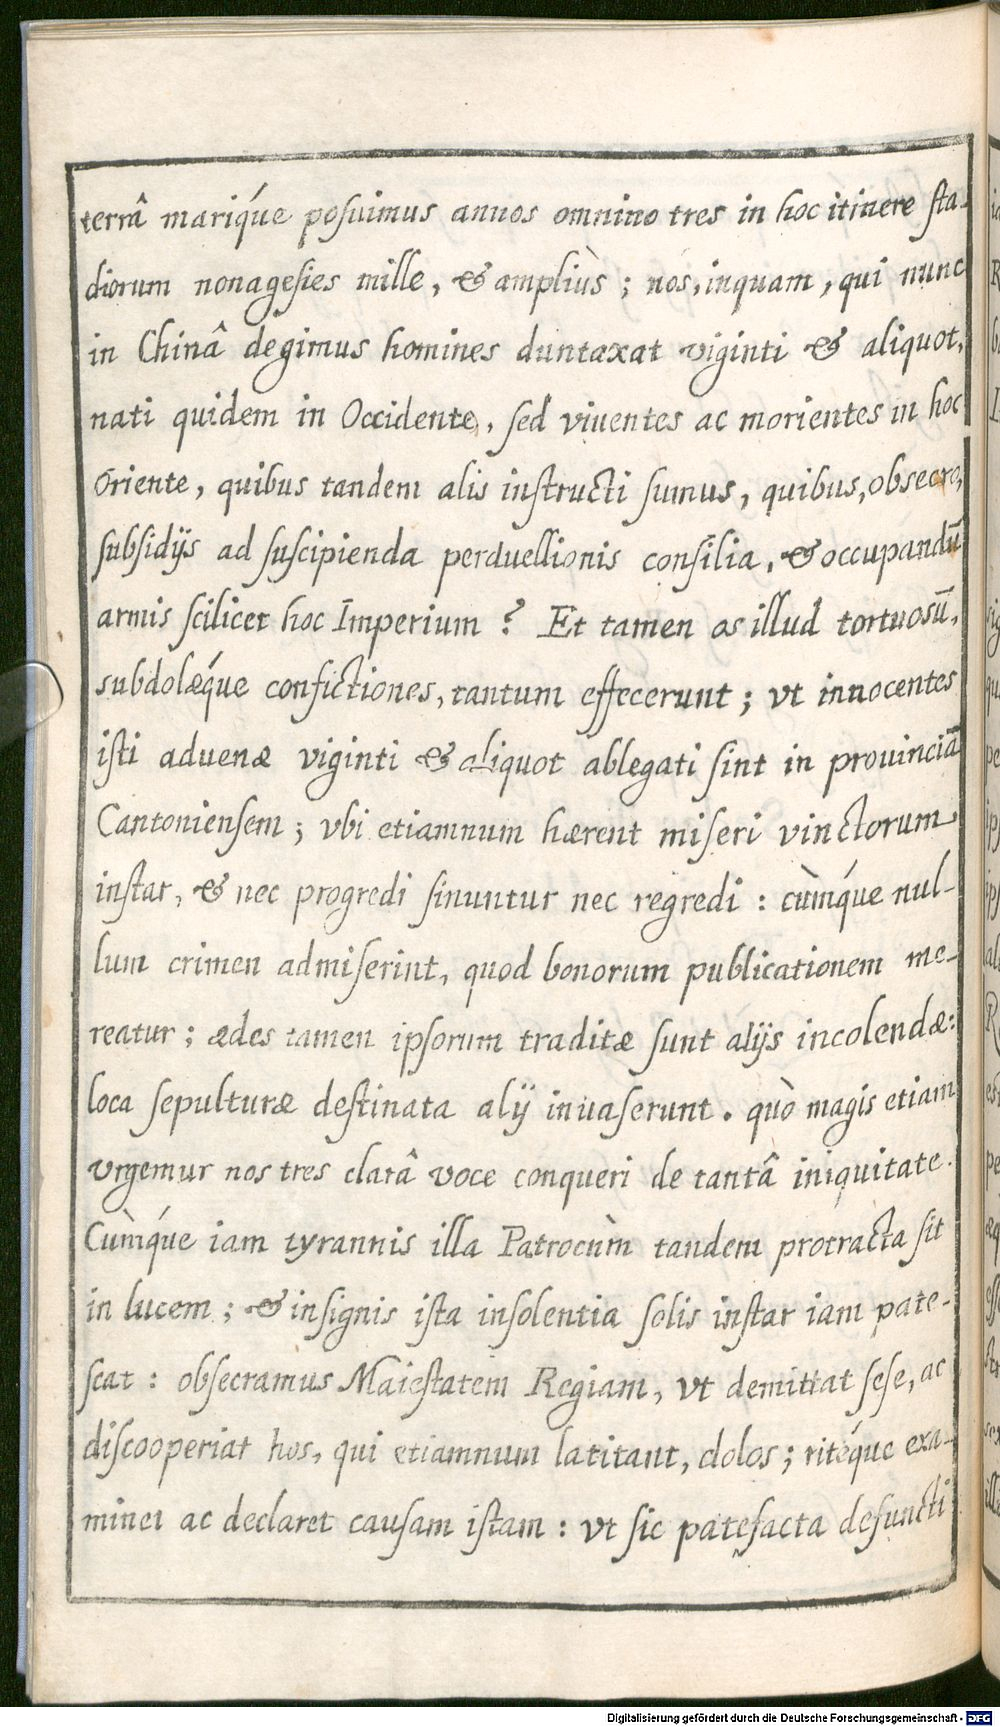 terrâ mariq́ue posuimus annos omnino tres in hoc itinere sta-
diorum nonagesies mille, & ampliùs; nos, inquam, qui nunc
in Chinâ degimus homines duntaxat viginti & aliquot,
nati quidem in Occidente, sed viuentes ac morientes in hoc
Oriente, quibus tandem alis instructi sumus, quibus, obsecro,
subsidijs ad suscipienda perduellionis consilia, & occupandū
armis scilicet hoc Imperium? Et tamen os illud tortuosū,
subdolæq́ue confictiones, tantum effecerunt; vt innocentes
isti aduenæ viginti & aliquot ablegati sint in prouinciā
Cantoniensem; vbi etiamnum hærent miseri vinctorum
instar, & nec progredi sinuntur nec regredi: cùmq́ue nul-
lum crimen admiserint, quod bonorum publicationem me-
reatur; ædes tamen ipsorum traditæ sunt alijs incolendæ:
loca sepulturæ destinata alij inuaserunt. quò magis etiam
vrgemur nos tres clarâ voce conqueri de tantâ iniquitate.
Cùmq́ue iam tyrannis illa Patrocùm tandem protracta sit
in lucem; & insignis ista insolentia solis instar iam pate-
scat: obsecramus Maiestatem Regiam, vt demittat sese, ac
discooperiat hos, qui etiamnum latitant, dolos; ritéque exa-
minet ac declaret causam istam: vt sic patefacta defuncti
Digitalisierung gefördert durch die Deutsche Forschungsgemeinschaft - DFG